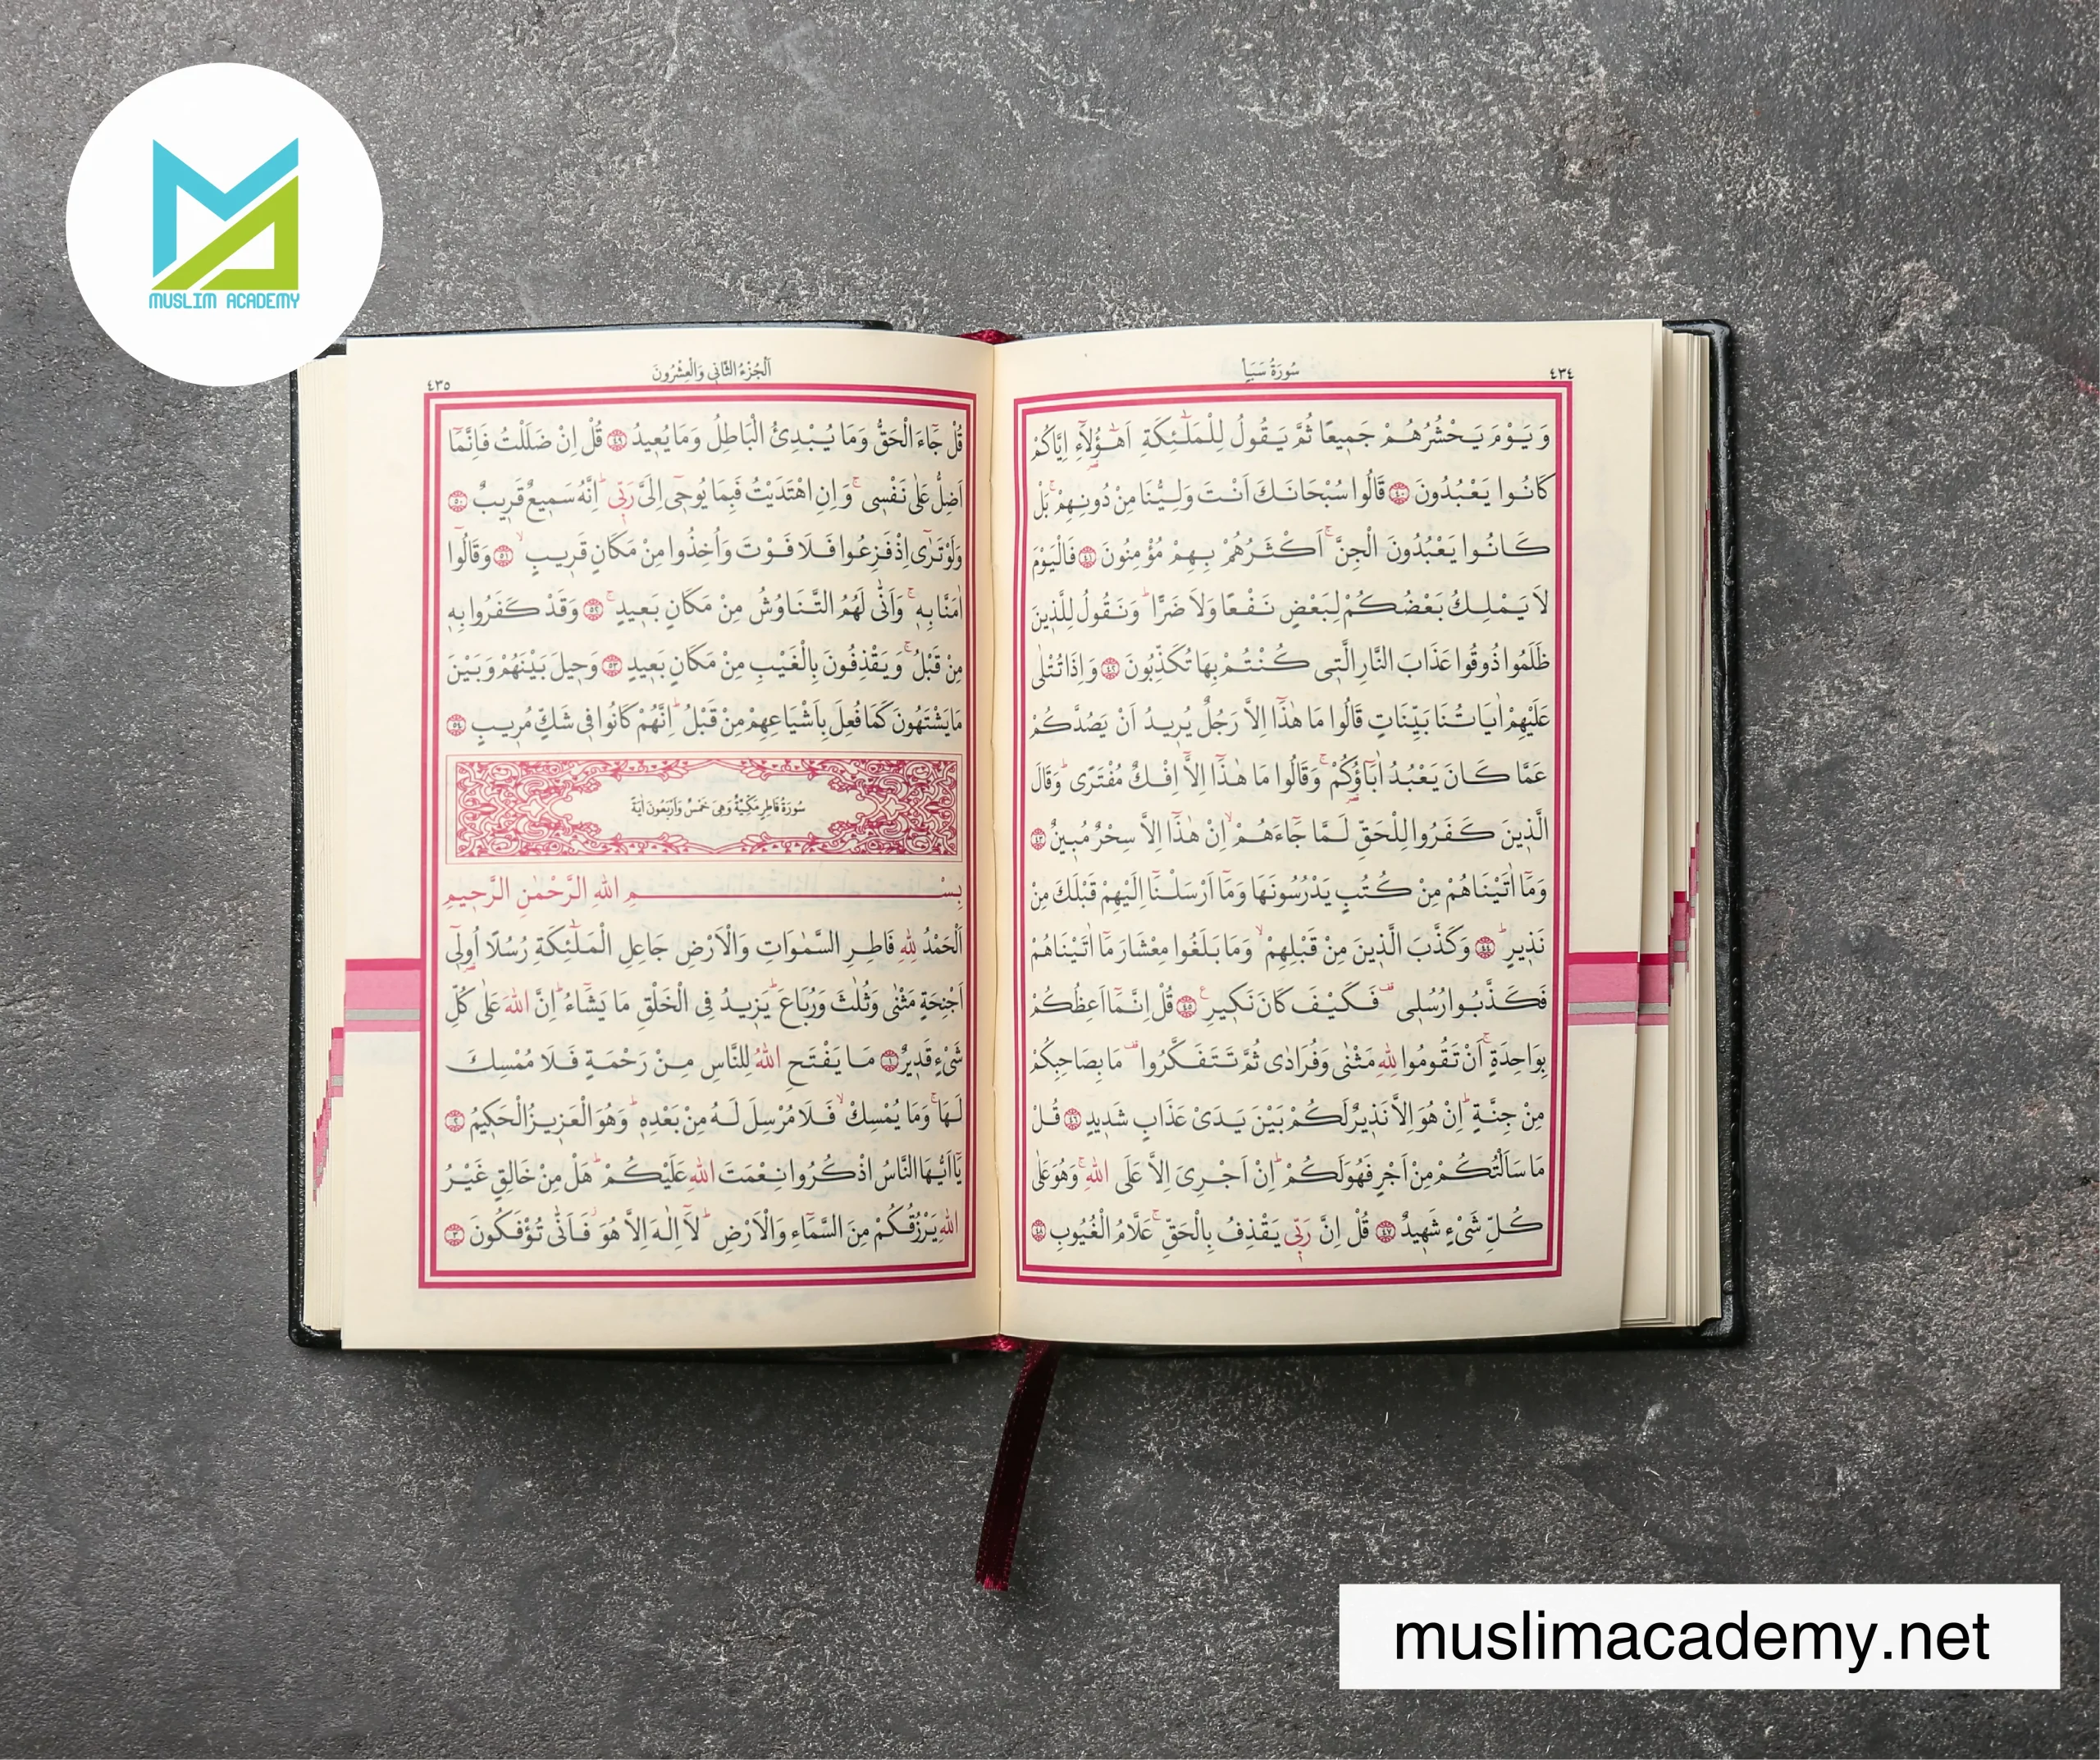 MUSLIM ACADEMY
سُورَةُ سَبَأٍ
٤٣٤
وَيَوْمَ يَحْشُرُهُمْ جَمِيعًا ثُمَّ يَقُولُ لِلْمَلٰٓئِكَةِ اَهٰٓؤُ۬لَٓاءِ اِيَّاكُمْ
كَانُوا يَعْبُدُونَ ﴿٤٠﴾ قَالُوا سُبْحَانَكَ اَنْتَ وَلِيُّنَا مِنْ دُونِهِمْۚ بَلْ
كَانُوا يَعْبُدُونَ الْجِنَّۚ اَكْثَرُهُمْ بِهِمْ مُؤْمِنُونَ ﴿٤١﴾ فَالْيَوْمَ
لَا يَمْلِكُ بَعْضُكُمْ لِبَعْضٍ نَفْعًا وَلَا ضَرًّاۜ وَنَقُولُ لِلَّذِينَ
ظَلَمُوا ذُوقُوا عَذَابَ النَّارِ الَّتِى كُنْتُمْ بِهَا تُكَذِّبُونَ ﴿٤٢﴾ وَاِذَا تُتْلٰى
عَلَيْهِمْ اٰيَاتُنَا بَيِّنَاتٍ قَالُوا مَا هٰذَٓا اِلَّا رَجُلٌ يُرِيدُ اَنْ يَصُدَّكُمْ
عَمَّا كَانَ يَعْبُدُ اٰبَٓاؤُ۬كُمْۚ وَقَالُوا مَا هٰذَٓا اِلَّٓا اِفْكٌ مُفْتَرًىۜ وَقَالَ
الَّذِينَ كَفَرُوا لِلْحَقِّ لَمَّا جَٓاءَهُمْۙ اِنْ هٰذَٓا اِلَّا سِحْرٌ مُبِينٌ ﴿٤٣﴾
وَمَٓا اٰتَيْنَاهُمْ مِنْ كُتُبٍ يَدْرُسُونَهَا وَمَٓا اَرْسَلْنَٓا اِلَيْهِمْ قَبْلَكَ مِنْ
نَذِيرٍۜ ﴿٤٤﴾ وَكَذَّبَ الَّذِينَ مِنْ قَبْلِهِمْۙ وَمَا بَلَغُوا مِعْشَارَ مَٓا اٰتَيْنَاهُمْ
فَكَذَّبُوا رُسُلِى۠ فَكَيْفَ كَانَ نَكِيرِ۟ ﴿٤٥﴾ قُلْ اِنَّمَٓا اَعِظُكُمْ
بِوَاحِدَةٍۚ اَنْ تَقُومُوا لِلّٰهِ مَثْنٰى وَفُرَادٰى ثُمَّ تَتَفَكَّرُوا۠ مَا بِصَاحِبِكُمْ
مِنْ جِنَّةٍۜ اِنْ هُوَ اِلَّا نَذِيرٌ لَكُمْ بَيْنَ يَدَىْ عَذَابٍ شَدِيدٍ ﴿٤٦﴾ قُلْ
مَا سَاَلْتُكُمْ مِنْ اَجْرٍ فَهُوَ لَكُمْۜ اِنْ اَجْرِىَ اِلَّا عَلَى اللّٰهِۚ وَهُوَ عَلٰى
كُلِّ شَىْءٍ شَهِيدٌ ﴿٤٧﴾ قُلْ اِنَّ رَبِّى يَقْذِفُ بِالْحَقِّۚ عَلَّامُ الْغُيُوبِ ﴿٤٨﴾
اَلْجُزْءُ الثَّانِى وَالْعِشْرُونَ
٤٣٥
قُلْ جَٓاءَ الْحَقُّ وَمَا يُبْدِئُ الْبَاطِلُ وَمَا يُعِيدُ ﴿٤٩﴾ قُلْ اِنْ ضَلَلْتُ فَاِنَّمَٓا
اَضِلُّ عَلٰى نَفْسِىۚ وَاِنِ اهْتَدَيْتُ فَبِمَا يُوحِٓى اِلَىَّ رَبِّىۜ اِنَّهُ سَمِيعٌ قَرِيبٌ ﴿٥٠﴾
وَلَوْ تَرٰٓى اِذْ فَزِعُوا فَلَا فَوْتَ وَاُخِذُوا مِنْ مَكَانٍ قَرِيبٍۙ ﴿٥١﴾ وَقَالُٓوا
اٰمَنَّا بِهِۚ وَاَنّٰى لَهُمُ التَّنَاوُشُ مِنْ مَكَانٍ بَعِيدٍۚ ﴿٥٢﴾ وَقَدْ كَفَرُوا بِهِ
مِنْ قَبْلُۚ وَيَقْذِفُونَ بِالْغَيْبِ مِنْ مَكَانٍ بَعِيدٍ ﴿٥٣﴾ وَحِيلَ بَيْنَهُمْ وَبَيْنَ
مَا يَشْتَهُونَ كَمَا فُعِلَ بِاَشْيَاعِهِمْ مِنْ قَبْلُۜ اِنَّهُمْ كَانُوا فِى شَكٍّ مُرِيبٍ ﴿٥٤﴾
سُورَةُ فَاطِرٍ مَكِّيَّةٌ وَهِىَ خَمْسٌ وَاَرْبَعُونَ اٰيَةً
بِسْمِ اللّٰهِ الرَّحْمٰنِ الرَّحِيمِ
اَلْحَمْدُ لِلّٰهِ فَاطِرِ السَّمٰوَاتِ وَالْاَرْضِ جَاعِلِ الْمَلٰٓئِكَةِ رُسُلًا اُو۬لِٓى
اَجْنِحَةٍ مَثْنٰى وَثُلٰثَ وَرُبَاعَۜ يَزِيدُ فِى الْخَلْقِ مَا يَشَٓاءُۜ اِنَّ اللّٰهَ عَلٰى كُلِّ
شَىْءٍ قَدِيرٌ ﴿١﴾ مَا يَفْتَحِ اللّٰهُ لِلنَّاسِ مِنْ رَحْمَةٍ فَلَا مُمْسِكَ
لَهَاۚ وَمَا يُمْسِكْۙ فَلَا مُرْسِلَ لَهُ مِنْ بَعْدِهِۜ وَهُوَ الْعَزِيزُ الْحَكِيمُ ﴿٢﴾
يَٓا اَيُّهَا النَّاسُ اذْكُرُوا نِعْمَتَ اللّٰهِ عَلَيْكُمْۜ هَلْ مِنْ خَالِقٍ غَيْرُ
اللّٰهِ يَرْزُقُكُمْ مِنَ السَّمَٓاءِ وَالْاَرْضِۜ لَٓا اِلٰهَ اِلَّا هُوَۘ فَاَنّٰى تُؤْفَكُونَ ﴿٣﴾
muslimacademy.net